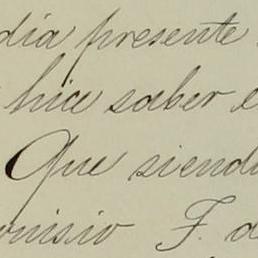 dia presente
hice saber e
Que siendo
onisio F. d